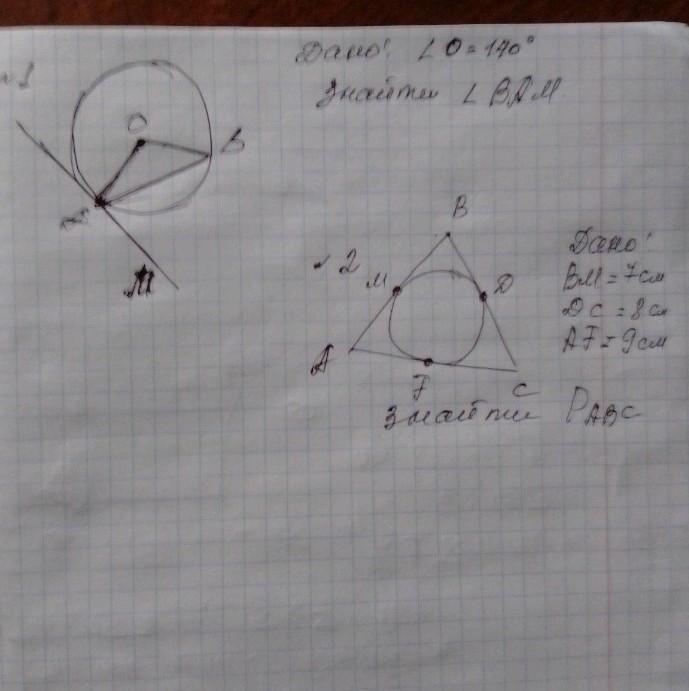 №1
Дано: ∠O = 140°
Знайти ∠BAM
O
B
A
M
№2
B
M
D
A
F
C
Дано:
BM = 7 см
DC = 8 см
AF = 9 см
Знайти P ABC